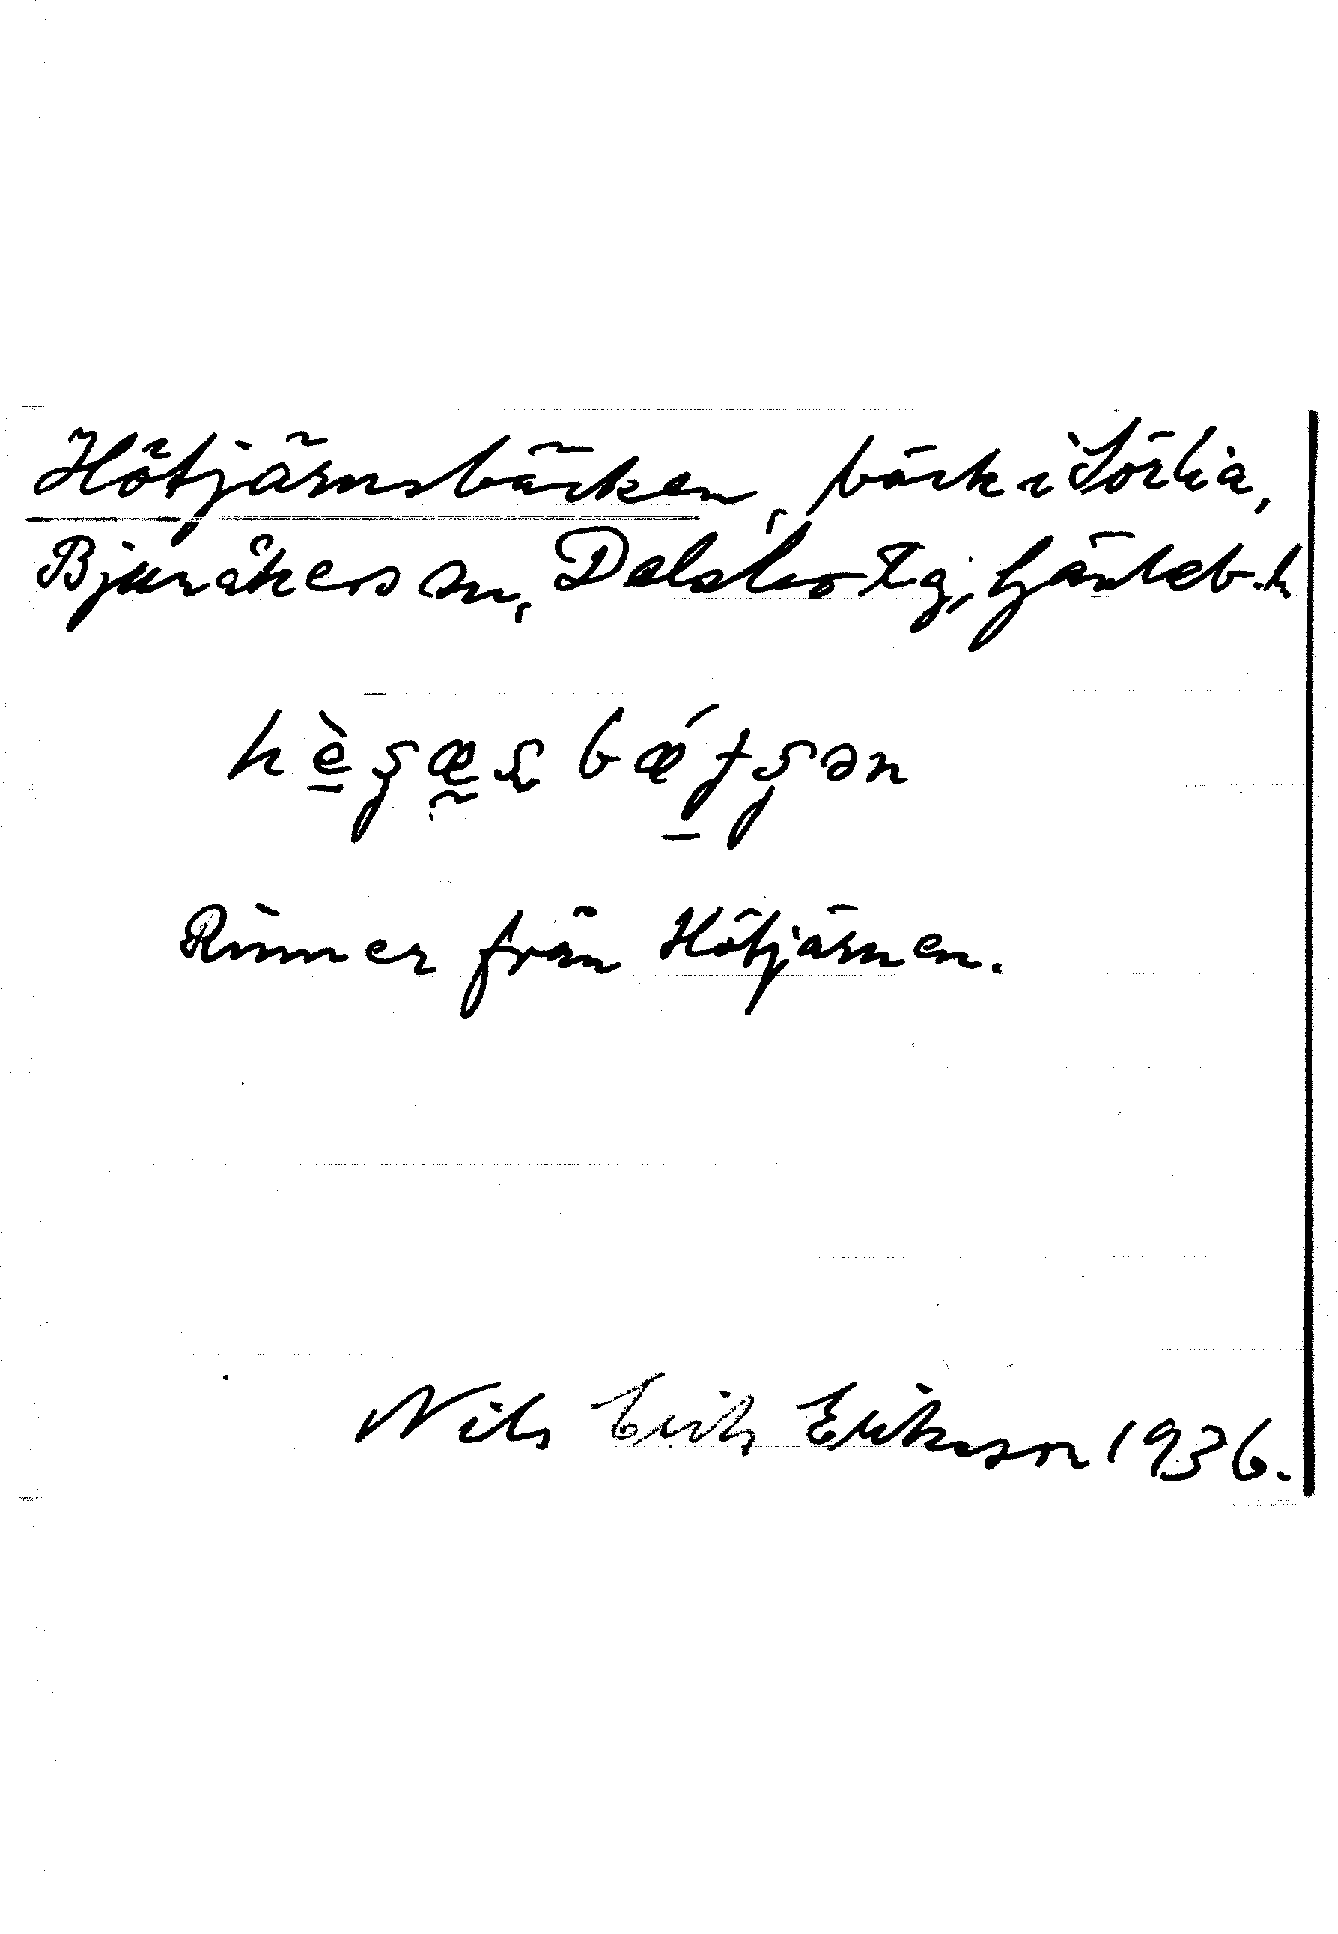 Hötjärnsbäcken, bäck i Sörlia,
Bjuråkers sn, Delsbo tg, Gävleb. l.
Rinner från Hötjärnen.
Nils Erik Eriksson 1936.